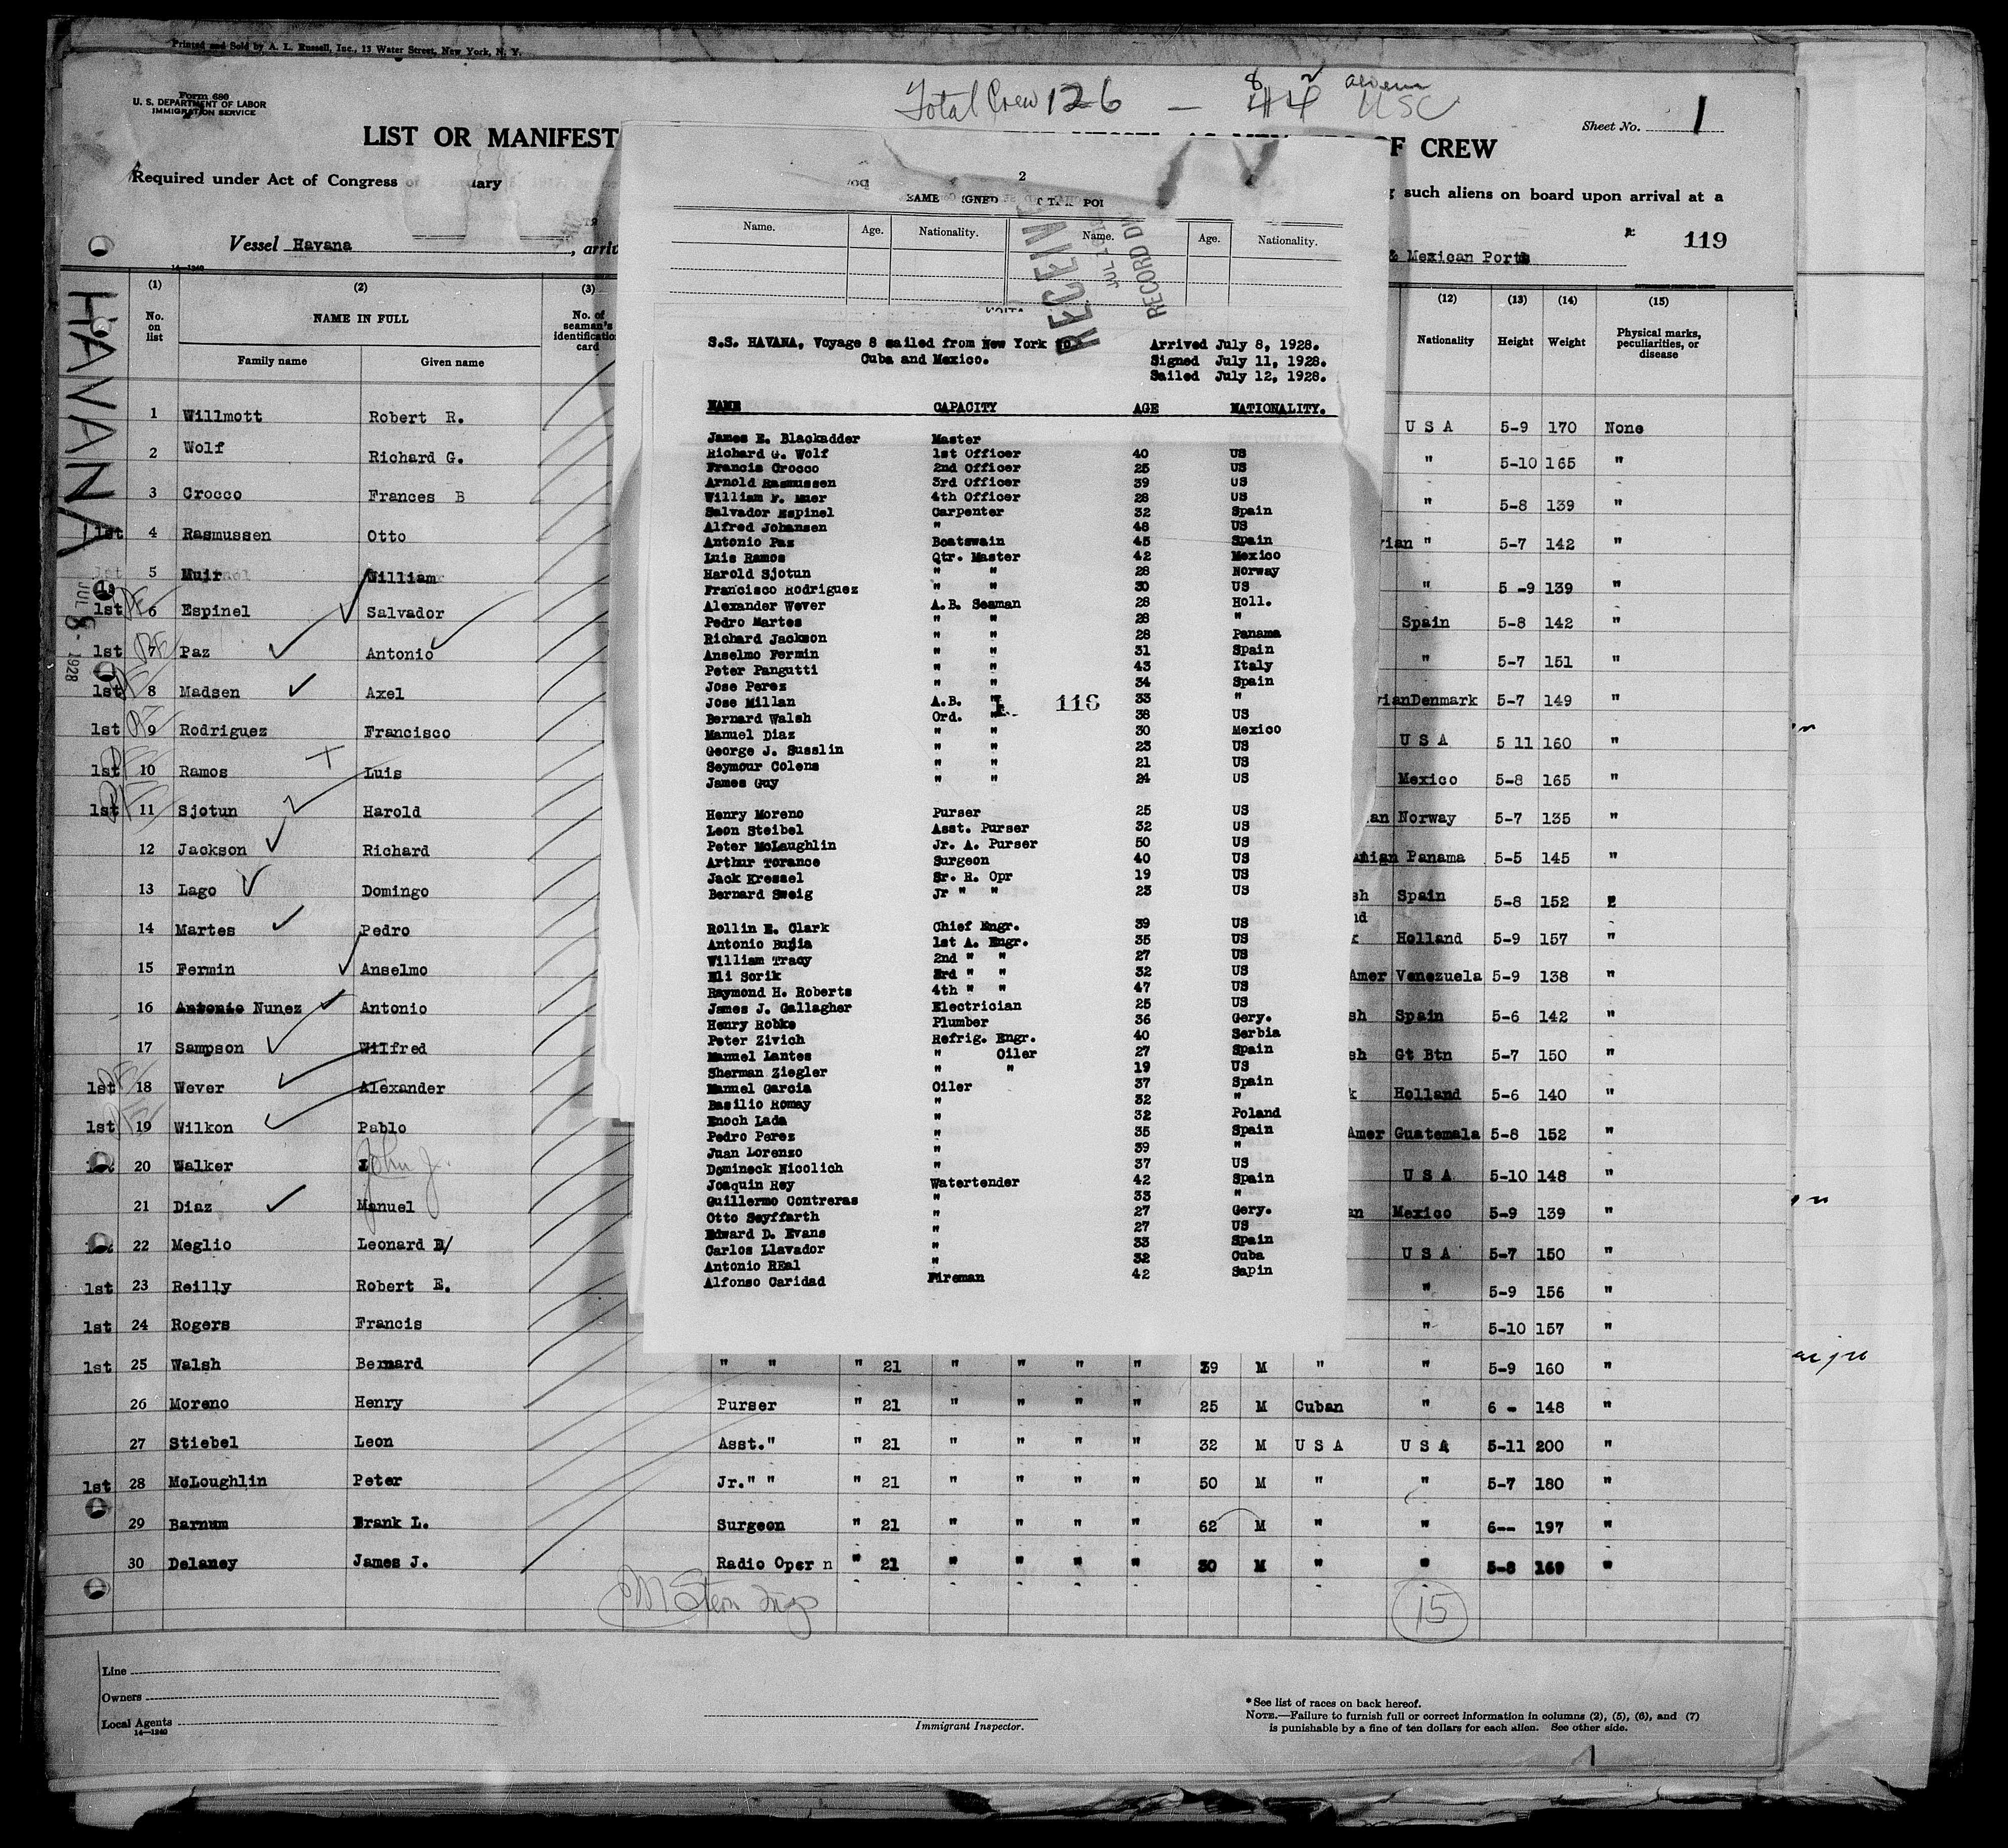 Printed and Sold by A. L. Russell, Inc., 13 Water Street, New York, N. Y.
Form 680
U. S. DEPARTMENT OF LABOR
IMMIGRATION SERVICE
Total Crew 126 —
USC
Sheet No. 1
LIST OR MANIFEST
OF CREW
Required under Act of Congress
such aliens on board upon arrival at a
Vessel Havana
, arriv
& Mexican Ports
119
HAVANA
JUL 8 - 1928
(1) (2) (3) (12) (13) (14) (15)
No. on list
NAME IN FULL
Family name Given name
No. of seaman's identification card
Nationality Height Weight Physical marks, peculiarities, or disease
1 Willmott Robert R. U S A 5-9 170 None
2 Wolf Richard G. " 5-10 165 "
3 Crocco Frances B " 5-8 139 "
1st 4 Rasmussen Otto " 5-7 142 "
5 Muir William " 5 -9 139 "
1st 6 Espinel Salvador Spain 5-8 142 "
1st 7 Paz Antonio " 5-7 151 "
1st 8 Madsen Axel Denmark 5-7 149 "
1st 9 Rodriguez Francisco U S A 5 11 160 "
1st 10 Ramos Luis Mexico 5-8 165 "
1st 11 Sjotun Harold Norway 5-7 135 "
12 Jackson Richard Panama 5-5 145 "
13 Lago Domingo Spain 5-8 152
14 Martes Pedro Holland 5-9 157 "
15 Fermin Anselmo Amer Venezuela 5-9 138 "
16 Antonio Nunez Antonio Spain 5-6 142 "
17 Sampson Wilfred Gt Btn 5-7 150 "
1st 18 Wever Alexander Holland 5-6 140 "
1st 19 Wilkon Pablo Amer Guatemala 5-8 152 "
20 Walker John J. U S A 5-10 148 "
21 Diaz Manuel Mexico 5-9 139 "
22 Meglio Leonard E/ U S A 5-7 150 "
1st 23 Reilly Robert E. " 5-9 156 "
1st 24 Rogers Francis " 5-10 157 "
1st 25 Walsh Bernard " " " 21 " " " " 39 M " " 5-9 160 "
26 Moreno Henry Purser " 21 " " " " 25 M Cuban " 6 - 148 "
27 Stiebel Leon Asst." " 21 " " " " 32 M U S A U S A 5-11 200 "
1st 28 McLoughlin Peter Jr." " " 21 " " " " 50 M " " 5-7 180 "
29 Barnum Frank L. Surgeon " 21 " " " " 62 M " " 6-- 197 "
30 Delaney James J. Radio Oper n " 21 " " " " 30 M " " 5-8 169 "
15
Line
Owners
Local Agents
14—1240
Immigrant Inspector.
*See list of races on back hereof.
NOTE.—Failure to furnish full or correct information in columns (2), (5), (6), and (7)
is punishable by a fine of ten dollars for each alien. See other side.
1
2
Name. Age. Nationality. Name. Age. Nationality.
RECEIVED
RECORD DIV
S.S. HAVANA, Voyage 8 sailed from New York to
Cuba and Mexico.
Arrived July 8, 1928.
Signed July 11, 1928.
Sailed July 12, 1928.
NAME CAPACITY AGE NATIONALITY.
James E. Blackadder Master
Richard G. Wolf 1st Officer 40 US
Francis Crocco 2nd Officer 25 US
Arnold Rasmussen 3rd Officer 39 US
William F. Muer 4th Officer 28 US
Salvador Espinel Carpenter 32 Spain
Alfred Johansen " 48 US
Antonio Paz Boatswain 45 Spain
Luis Ramos Qtr. Master 42 Mexico
Harold Sjotun " " 28 Norway
Francisco Rodriguez " " 30 US
Alexander Wever A.B. Seaman 28 Holl.
Pedro Martes " " 28 "
Richard Jackson " " 28 Panama
Anselmo Fermin " " 31 Spain
Peter Pangutti " " 43 Italy
Jose Perez " " 34 Spain
Jose Millan A.B. " 33 "
116
Bernard Walsh Ord. " 38 US
Manuel Diaz " " 30 Mexico
George J. Susslin " " 23 US
Seymour Colens " " 21 US
James Guy " " 24 US
Henry Moreno Purser 25 US
Leon Steibel Asst. Purser 32 US
Peter McLaughlin Jr. A. Purser 50 US
Arthur Torance Surgeon 40 US
Jack Kressel Sr. R. Opr 19 US
Bernard Sweig Jr " " 23 US
Rollin E. Clark Chief Engr. 39 US
Antonio Bujia 1st A. Engr. 35 US
William Tracy 2nd " " 27 US
Eli Sorik 3rd " " 32 US
Raymond H. Roberts 4th " " 47 US
James J. Gallagher Electrician 25 US
Henry Robke Plumber 36 Gery.
Peter Zivich Refrig. Engr. 40 Serbia
Manuel Lantes " Oiler 27 Spain
Sherman Ziegler " " 19 US
Manuel Garcia Oiler 37 Spain
Basilio Romay " 32 "
Enoch Lada " 32 Poland
Pedro Perez " 35 Spain
Juan Lorenzo " 39 "
Domineck Nicolich " 37 US
Joaquin Rey Watertender 42 Spain
Guillermo Contreras " 33 "
Otto Seyffarth " 27 Gery.
Edward D. Evans " 27 US
Carlos Llavador " 33 Spain
Antonio REal " 32 Cuba
Alfonso Caridad Fireman 42 Sapin